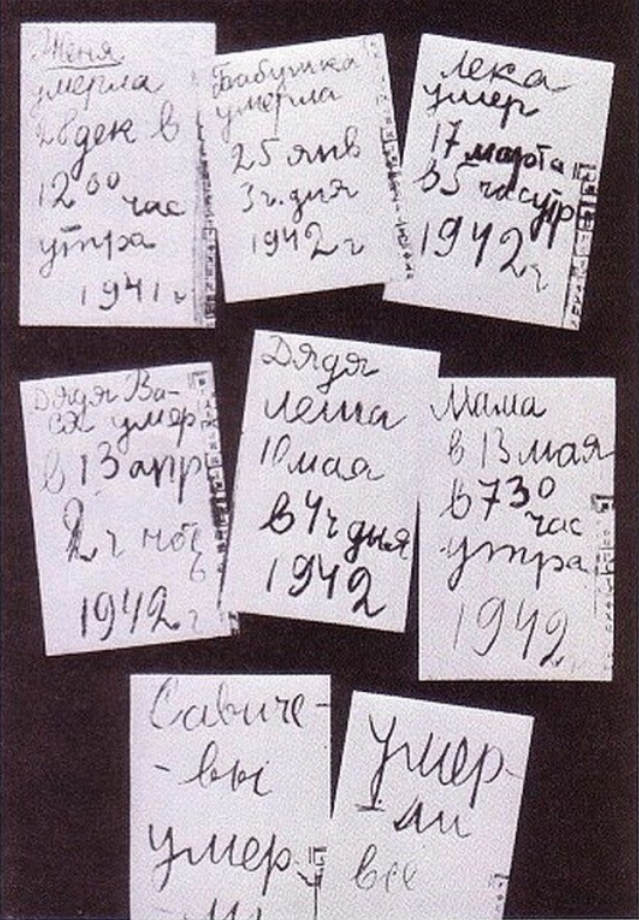 Женя
умерла
28 дек в
12 00 час
утра
1941 г
Бабушка
умерла
25 янв
3 ч. дня
1942 г
Лека
умер
17 марта
в 5 час утр
1942 г
Дядя Ва-
ся умер
в 13 апр
2 ч ночь
1942 г
Дядя
Леша
10 мая
в 4 ч дня
1942
Мама
в 13 мая
в 7 30
час
утра
1942
Савиче-
- вы
умер-
ли
умер-
ли
все